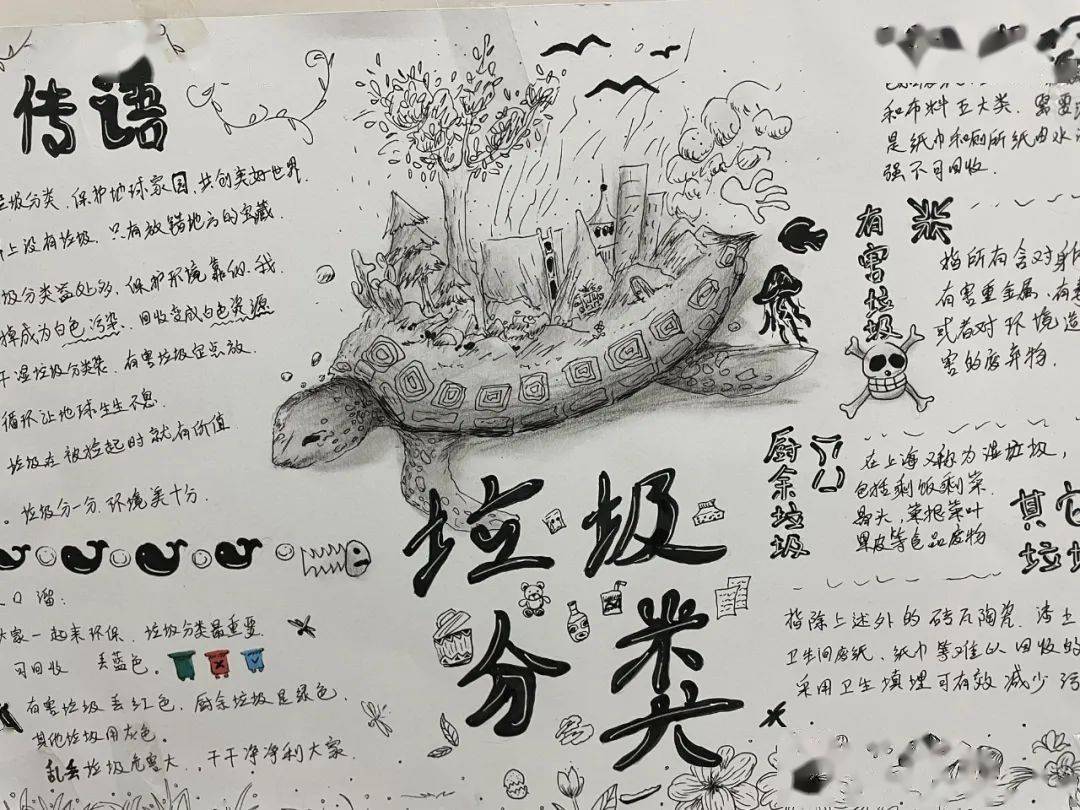 传语
垃圾分类,保护地球家园,共创美好世界.
上没有垃圾,只有放错地方的宝藏.
圾分类益处多,保护环境靠你我.
掉成为白色污染.回收变成白色资源
干湿垃圾分类装,有害垃圾定点放.
循环让地球生生不息
垃圾在被捡起时就有价值
。垃圾分一分.环境美十分.
口溜:
大家一起来环保.垃圾分类最重要
可回收 丢蓝色.
有害垃圾丢红色.厨余垃圾是绿色.
其他垃圾用灰色。
乱丢垃圾危害大.干干净净利大家.
垃圾
分类
和布料五大类.需要
是纸巾和厕所纸由水
强不可回收.
有害垃圾
指所有含对身
有害重金属、有
或者对环境造
害的废弃物.
厨余垃圾
在上海又称为湿垃圾,
包括剩饭剩菜.
骨头,菜根菜叶
果皮等食品废物
其它
垃圾
指除上述外的砖瓦陶瓷.渣土
卫生间废纸、纸巾等难以回收的
采用卫生填埋可有效减少污